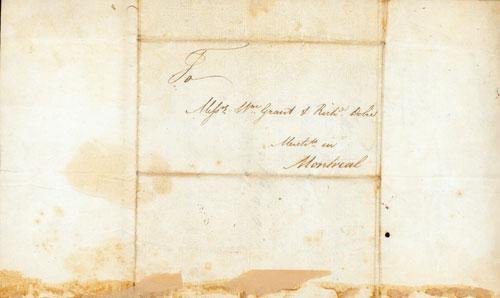 To
Messrs Wm Grant & Richd Dobie
Merchts in
Montreal